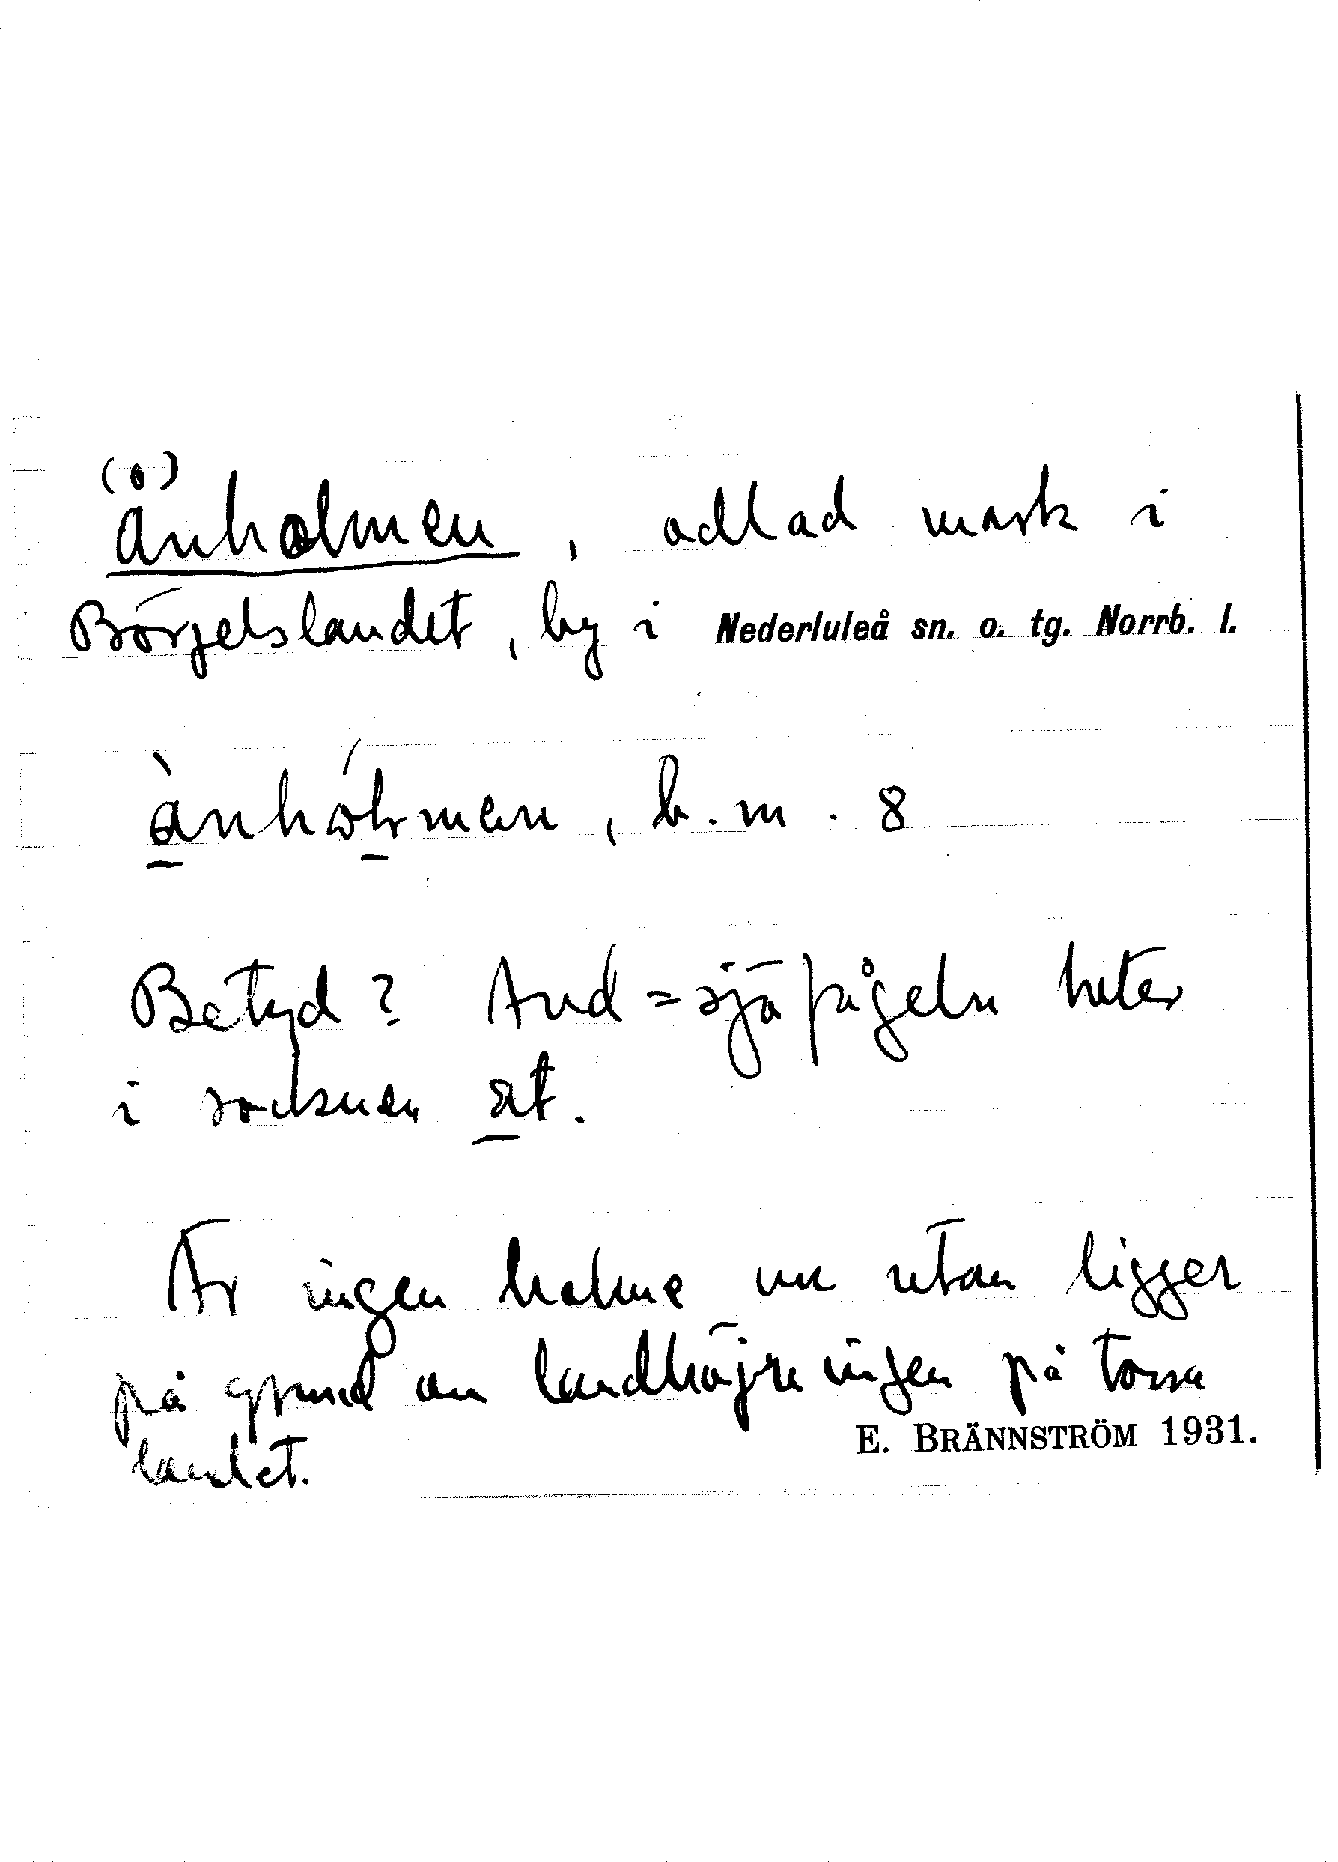 (o)
Ånholmen, odlad mark i
Börjelslandet, by i Nederluleå sn. o. tg. Norrb. l.
b. m. 8
Betyd? And = sjöfågeln heter
i socknen
Är ingen holme nu utan ligger
på grund av landhöjningen på torra
landet.
E. BRÄNNSTRÖM 1931.